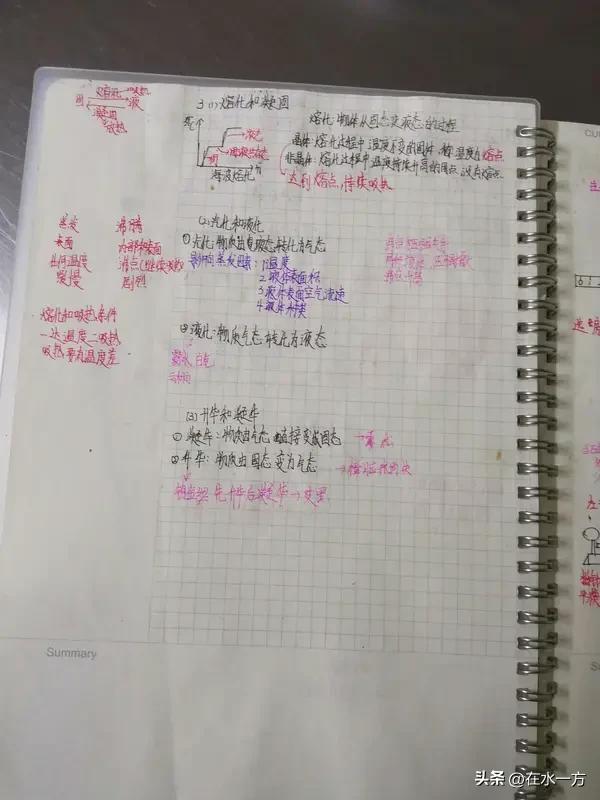 熔化 吸热
固 液
凝固
放热
3 (1) 熔化和凝固
熔化: 物体从固态变液态的过程
晶体: 熔化过程中温度不变的固体, 熔点
非晶体: 熔化过程中温度持续升高的固体, 没有熔点
达到熔点, 持续吸热
海波熔化
(2) 汽化和液化
蒸发 沸腾
表面 内部和表面
任何温度 沸点(继续吸热)
缓慢 剧烈
①汽化: 物质由液态转化为气态
影响蒸发因素: 1 温度
2 液体表面积
3 液体表面空气流速
4 液体种类
熔化和吸热条件
一达温度二吸热
吸热要有温度差
②液化: 物质气态转化为液态
白气
(3) 升华和凝华
① 凝华: 物质由气态直接变成固态
② 升华: 物质由固态变为气态
先升华后凝华→变黑
Summary
头条 @在水一方